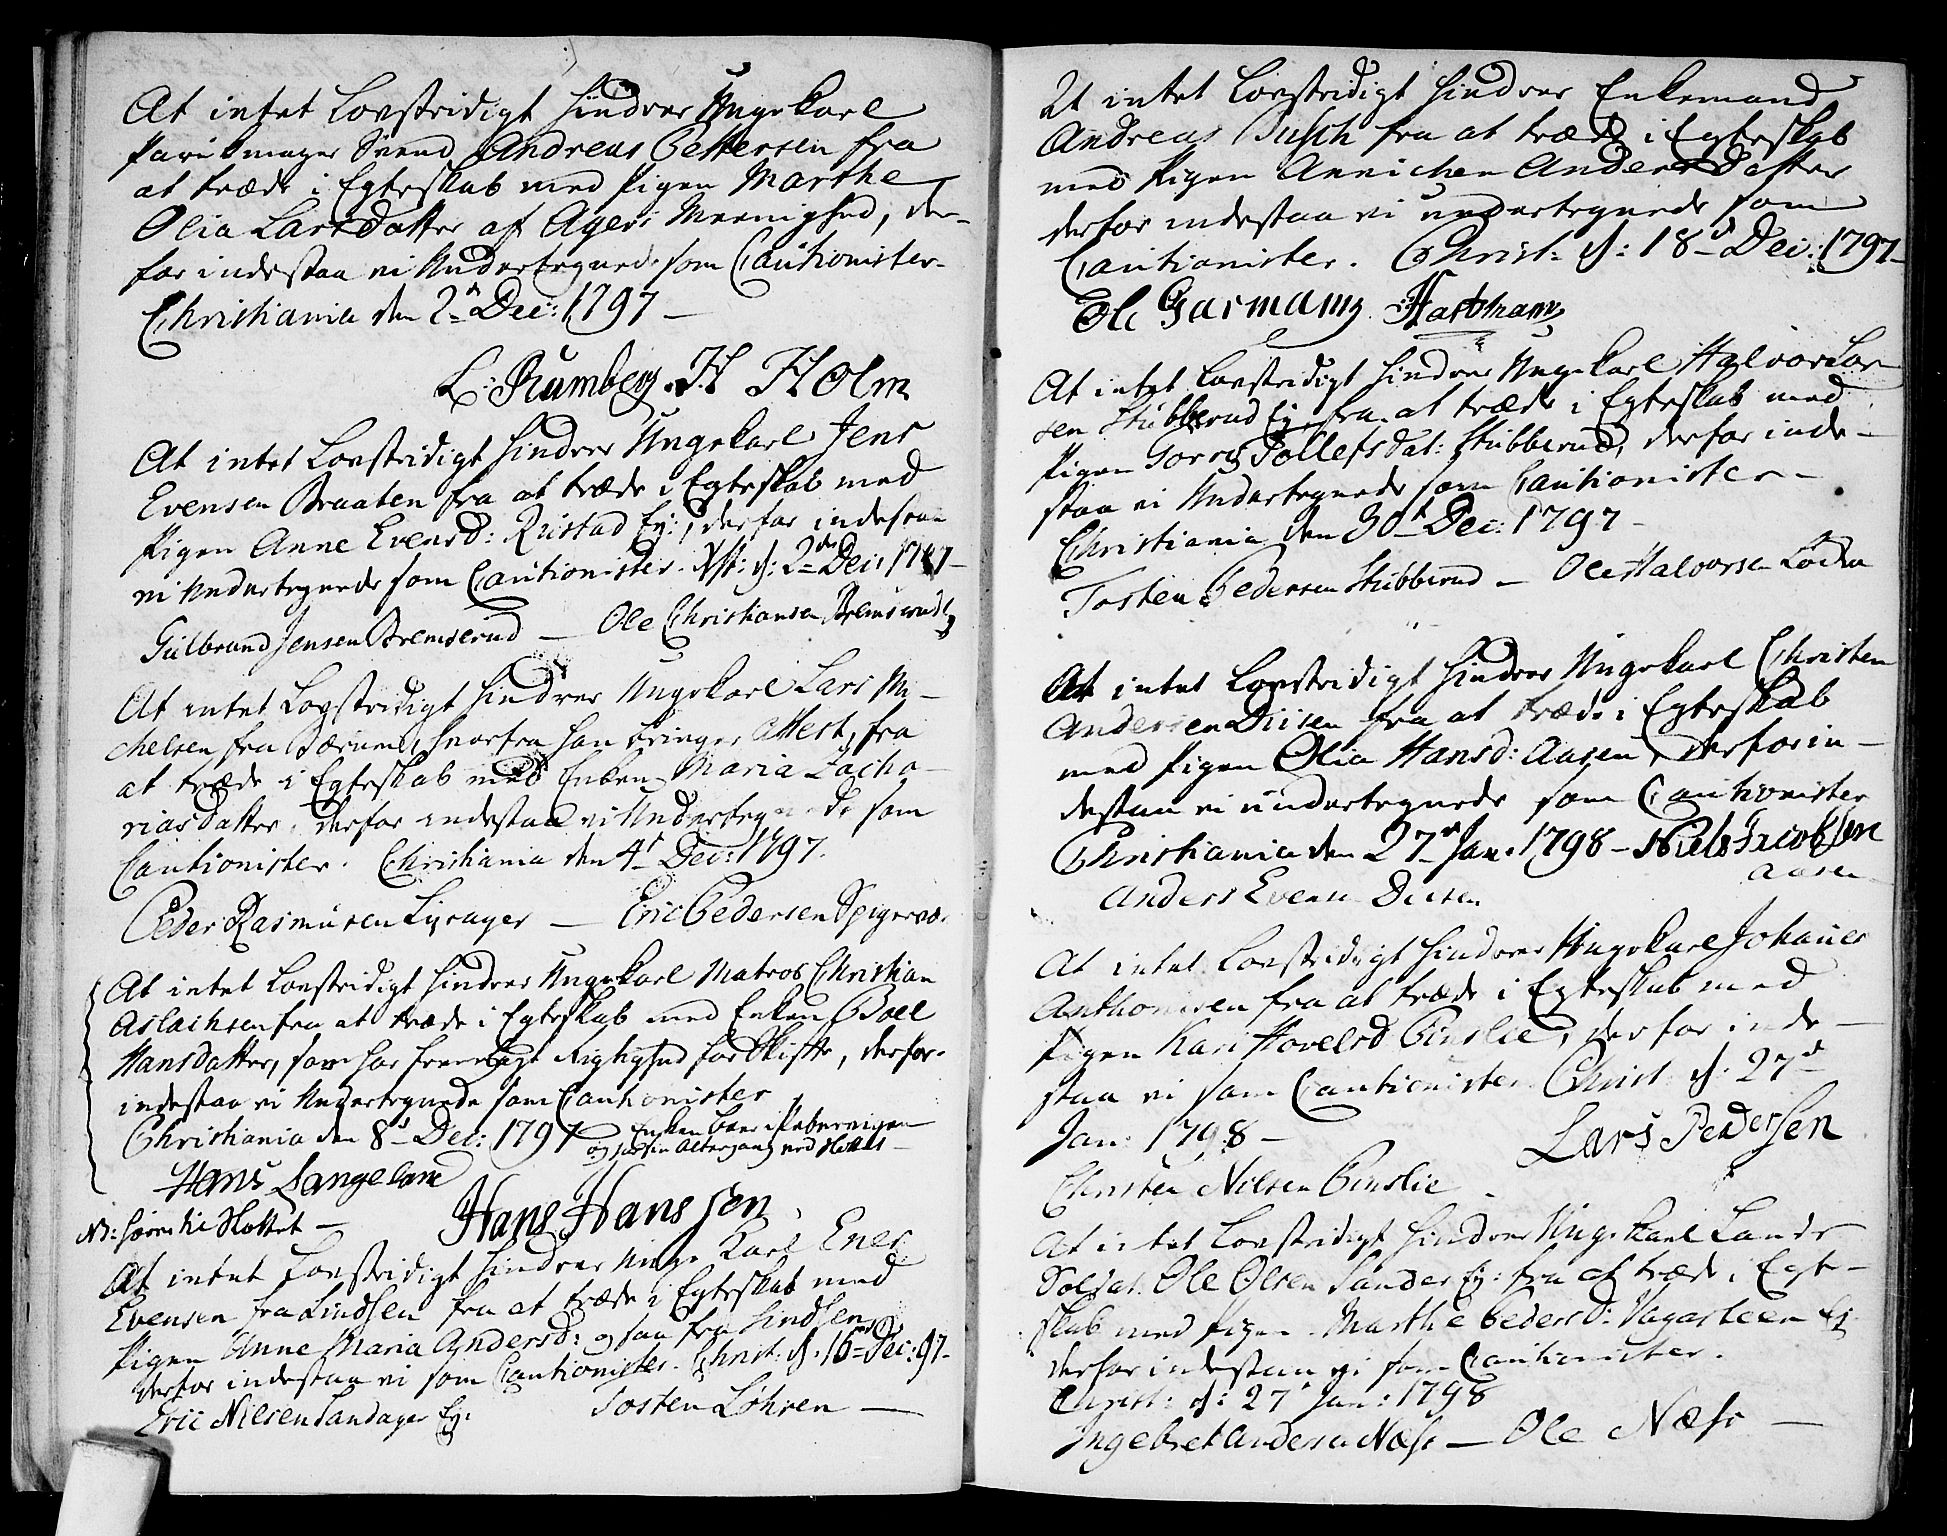 At intet Lovstridigt hindrer Ungekarl
Parikmager Svend Andreas Pettersen fra
at træde i Egteskab med Pigen Marthe
Olia Larsdatter af Agers Meenighed, der-
for indestaa vi Undertegnede som Cautionister.
Christiania den 2d Dec: 1797 –
L: Rumberg. H Holm
At intet Lovstridigt hindrer Ungekarl Jens
Evensen Braaten fra at træde i Egteskab med
Pigen Anne Evensd: Ristad Ej:, derfor indestaae
vi Undertegnede som Cautionister. Xst: d: 2den Dec: 1797 –
Gulbrand Jensen Bremserud – Ole Christiansen Bremserud
At intet Lovstridigt hindrer Ungekarl Lars Mi-
chelsen fra Bærum, hvorfra han bringer Attest, fra
at træde i Egteskab med Enken Maria Zacha-
riasdatter, derfor indestaae vi Undertegnede som
Cautionister. Christiania den 4d Dec: 1797.
Peder Rasmusen Lysager – Eric Pedersen
At intet Lovstridigt hindrer Ungekarl Matros Christian
Aslachsen fra at træde i Egteskab med Enken Boel
Hansdatter, som har fremlagt Rigtighed for Skifte, derfor
indestaa vi Undertegnede som Cautionister
Christiania den 8d Dec: 1797 Enken boer i Pebervigen
og
Hans Langeland
Hans Hanssen
NB: hører til Slottet –
At intet Lovstridigt hindrer Unge Karl Ener
Evensen fra Lindsen fra at træde i Egteskab med
Pigen Anne Maria Andersd: og saa fra Lindsen
derfor indestaa vi som Cautionister. Christ: d: 16 Dec: 97 –
Eric Nilsen Sandager Ej: Tosten Løhren –
At intet Lovstridigt hindrer Enkemand
Andreas Busch fra at træde i Egteskab
med Pigen Annichen Andersdatter
derfor indestaa vi undertegnede som
Cautionister. Christ: d: 18d Dec: 1797 –
Ole Garmann Hartmann
At intet Lovstridigt hindrer Ungekarl Halvor Lar-
sen Stubberud Eye fra at træde i Egteskab med
Pigen Gorro Tollefsdat: Stubberud, derfor inde-
staa vi Undertegnede som Cautionister –
Christiania den 30d Dec: 1797 –
Tosten Pedersen Stubberud – Ole Halvorsen
At intet Lovstridigt hindrer Ungekarl Christen
Andersen Diisen fra at træde i Egteskab
med Pigen Olia Hansd: Aasen, derfor in-
destaa vi undertegnede som Cautionister
Christiania den 27d Jan: 1798 – Niels Jacobsen
Aasen
Anders Evens. Diisen
At intet Lovstridigt hindrer Ungekarl Johannes
Anthonisen fra at træde i Egteskab med
Pigen Kari Hovelsd, derfor inde-
staa vi som Cautionister Christ: d: 27d
Jan: 1798 –
Lars Pedersen
Christen Nilsen
At intet Lovstridigt hindrer Ungekarl Lands
Soldat Ole Olsen Sander Ej: fra at træde i Egte-
skab med Pigen Marthe Pedersd: Vagasteen Ej
derfor indestaa vi som Cautionister.
Christ: d: 27d Jan: 1798
Ingebret Andersen Næss – Ole Næss –